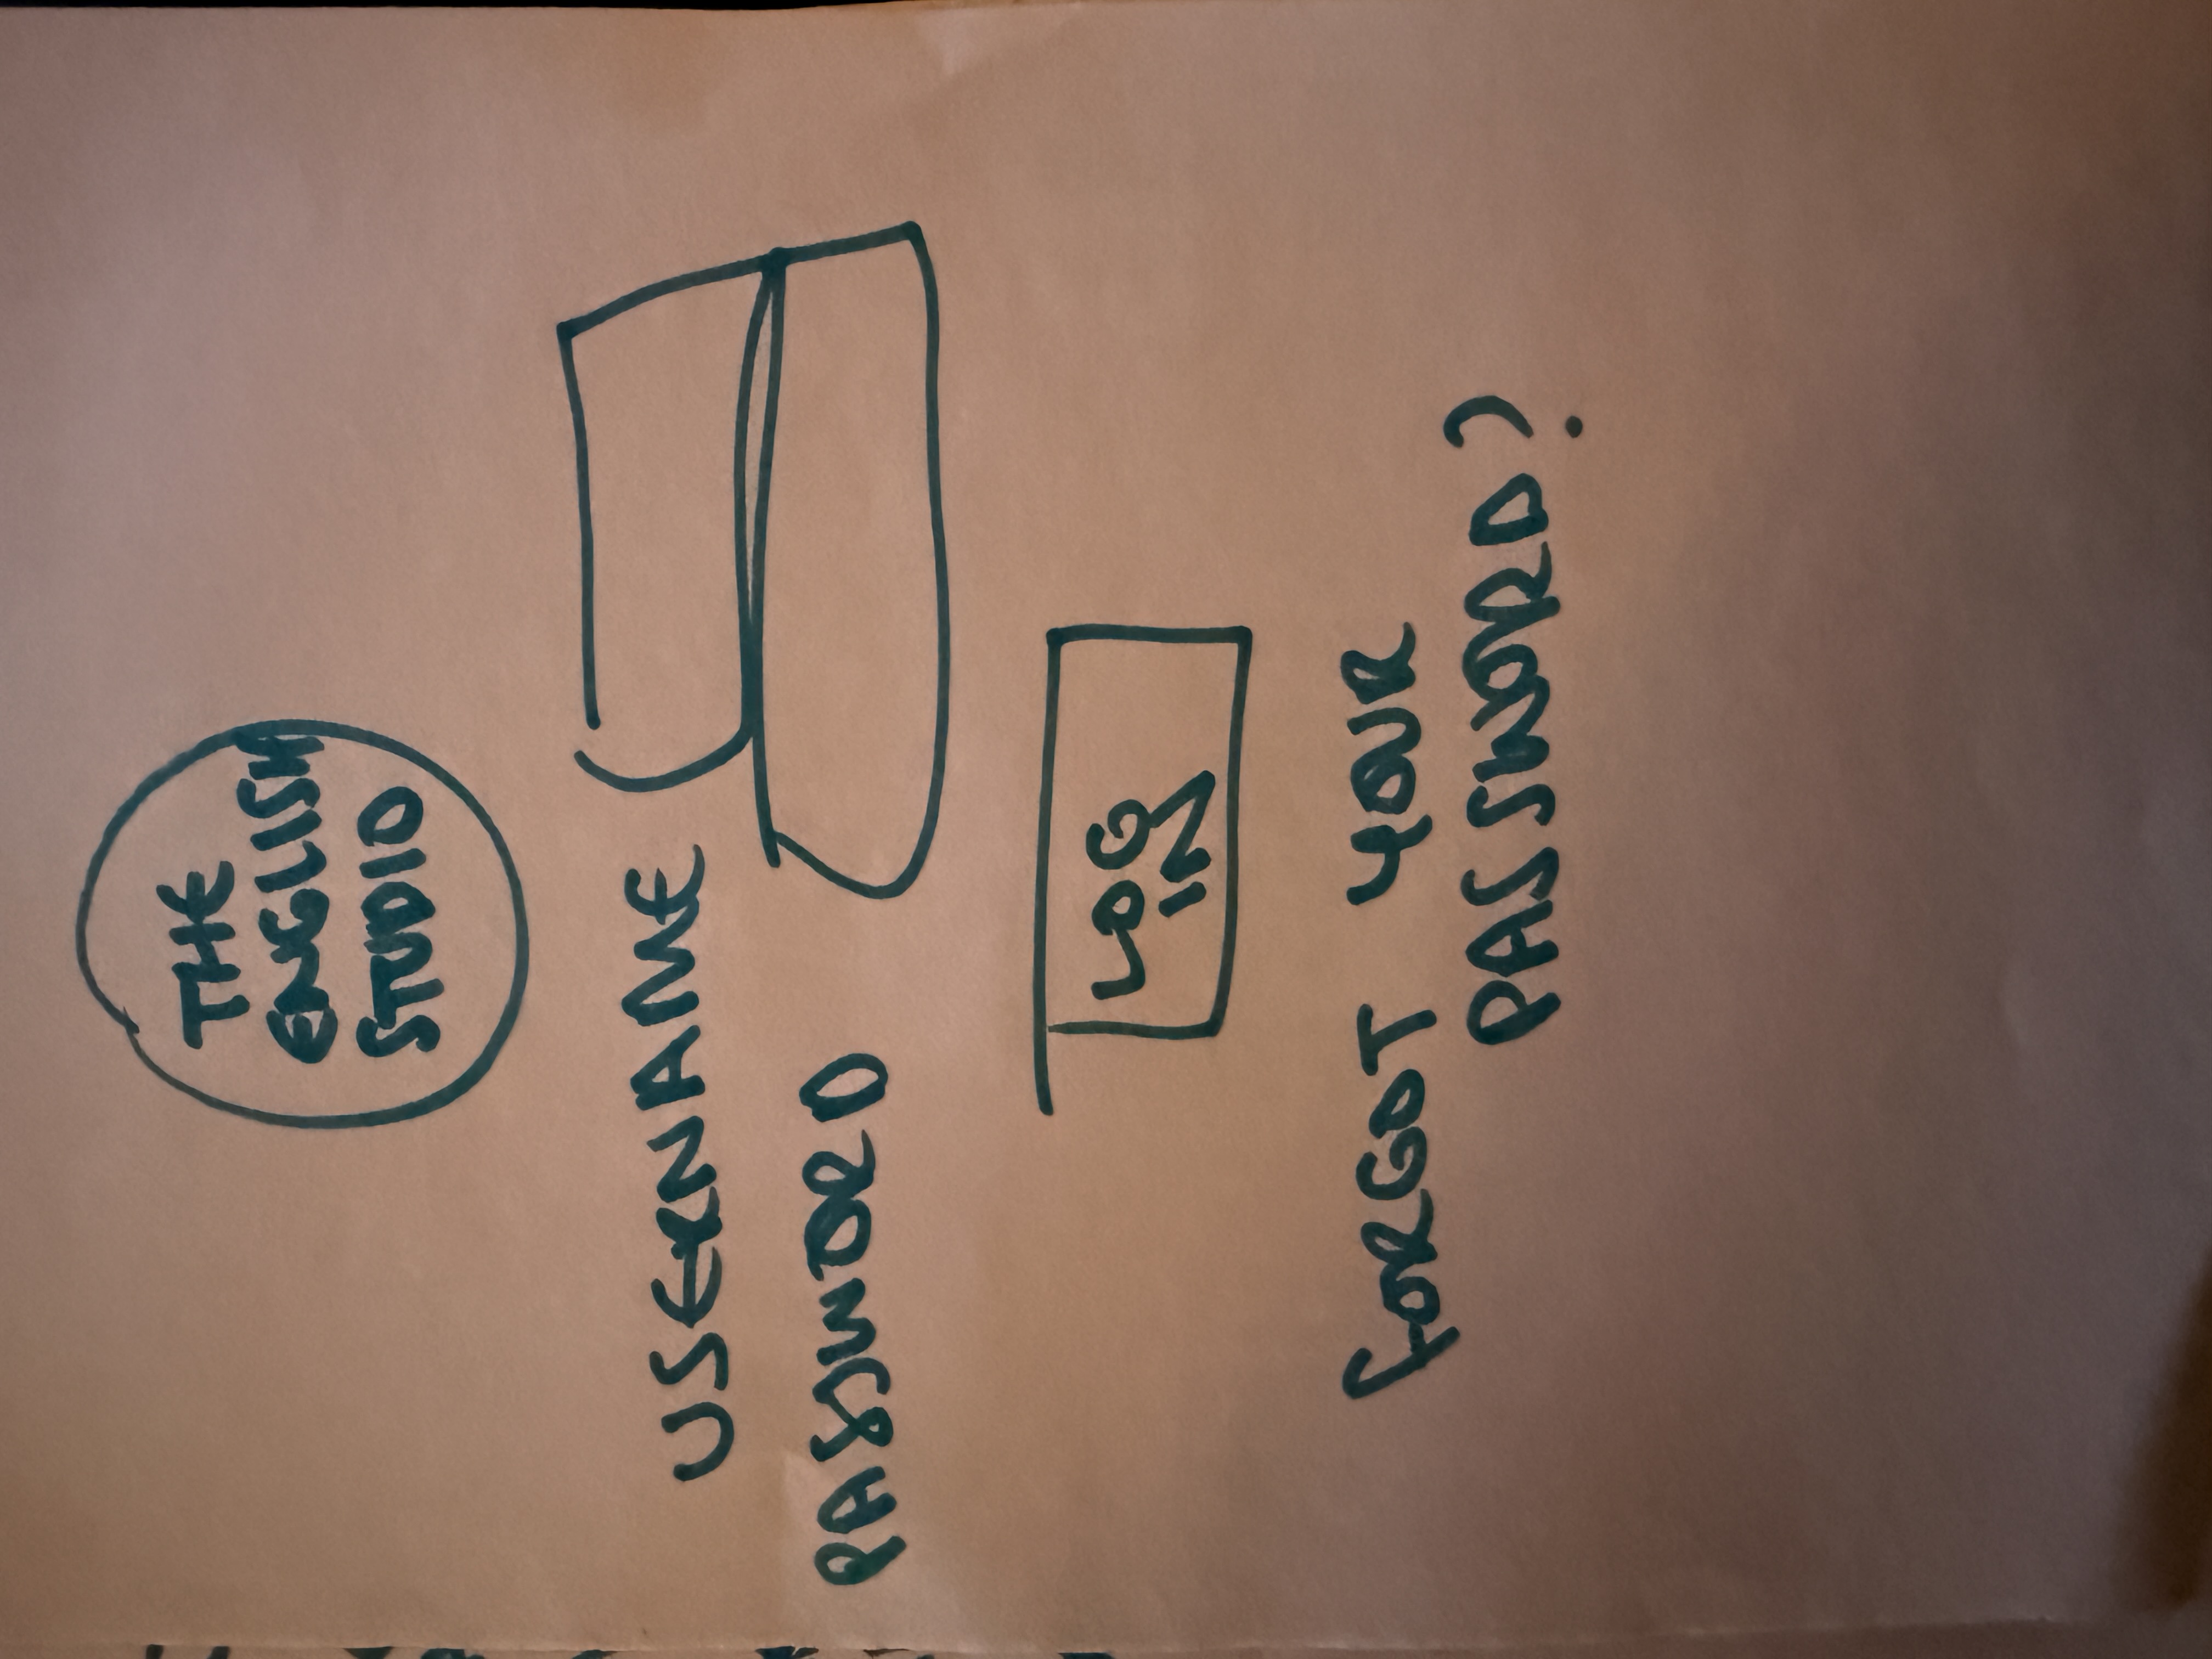 THE
ENGLISH
STUDIO
USERNAME
PASSWORD
LOG
IN
FORGOT YOUR
PASSWORD?